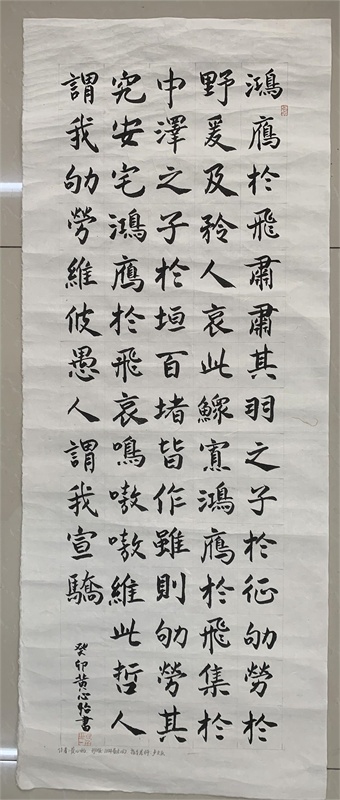 鴻鴈於飛肅肅其羽之子於征劬勞於
野爰及矜人哀此鰥寡鴻鴈於飛集於
中澤之子於垣百堵皆作雖則劬勞其
究安宅鴻鴈於飛哀鳴嗷嗷維此哲人
謂我劬勞維彼愚人謂我宣驕
癸卯黄心怡書